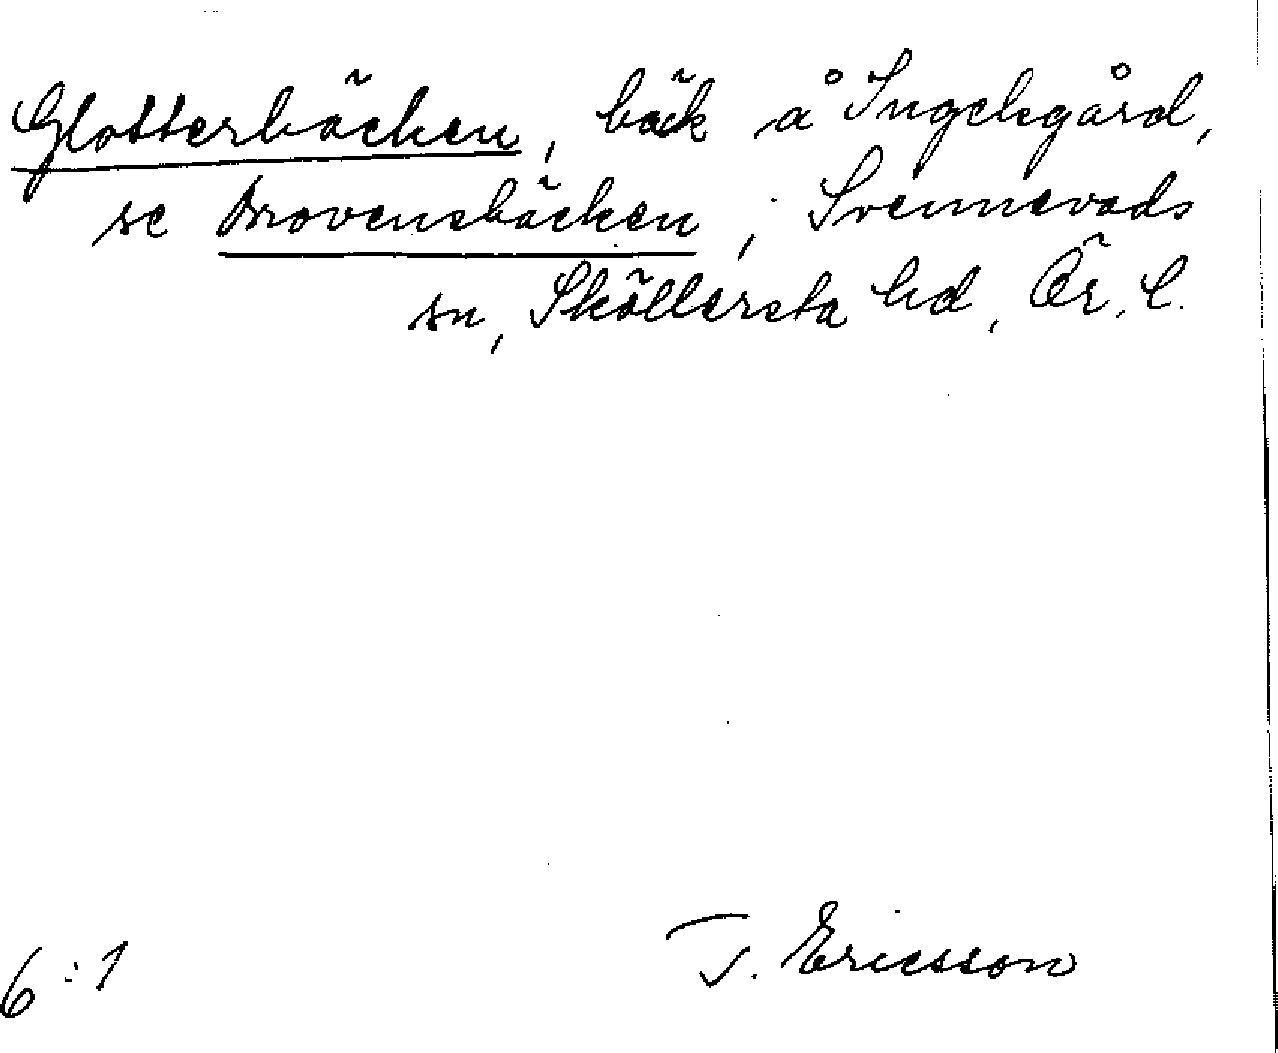 Glotterbäcken, bäck å Ingelsgård,
se Provensbäcken, Svennevads
sn, Sköllersta hd, Ör. l.
T. Ericsson
6:1